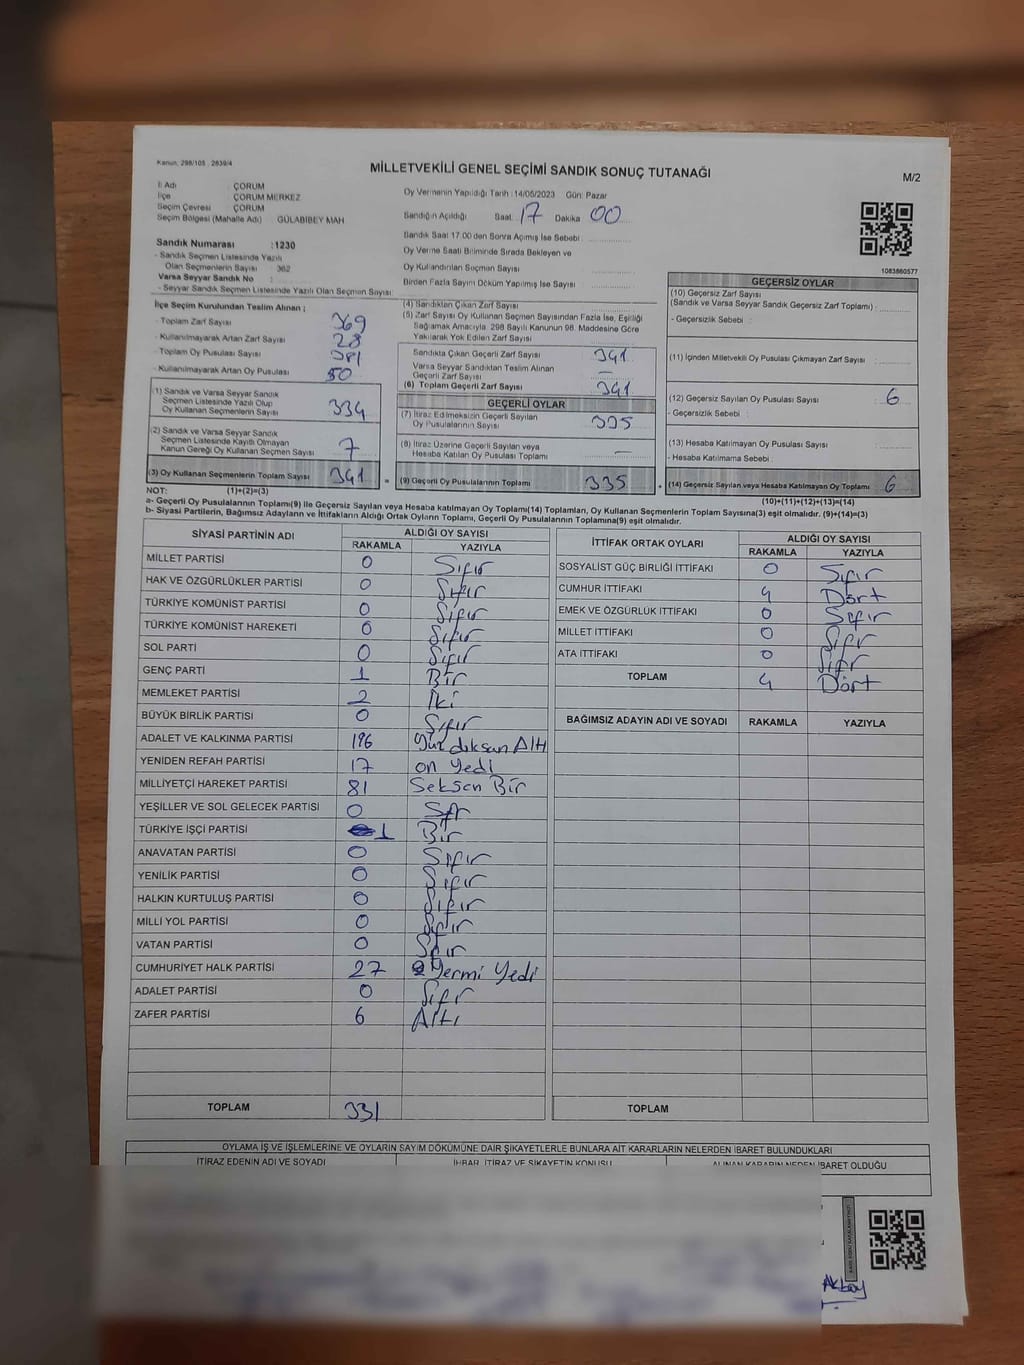 Kanun, 298/105 : 2839/4
MİLLETVEKİLİ GENEL SEÇİMİ SANDIK SONUÇ TUTANAĞI
M/2
İl Adı : ÇORUM
İlçe ÇORUM MERKEZ
Seçim Çevresi : ÇORUM
Seçim Bölgesi (Mahalle Adı) GÜLABİBEY MAH
Sandık Numarası :1230
- Sandık Seçmen Listesinde Yazılı
Olan Seçmenlerin Sayısı : 362
Varsa Seyyar Sandık No :
- Seyyar Sandık Seçmen Listesinde Yazılı Olan Seçmen Sayısı:
Oy Vermenin Yapıldığı Tarih :14/05/2023 Gün: Pazar
Sandığın Açıldığı Saat: 17 Dakika 00
Sandık Saat 17.00'den Sonra Açılmış İse Sebebi :
Oy Verme Saati Bitiminde Sırada Bekleyen ve
Oy Kullandırılan Seçmen Sayısı
Birden Fazla Sayım Döküm Yapılmış İse Sayısı
1083860577
İlçe Seçim Kurulundan Teslim Alınan ;
- Toplam Zarf Sayısı 369
- Kullanılmayarak Artan Zarf Sayısı 28
- Toplam Oy Pusulası Sayısı
- Kullanılmayarak Artan Oy Pusulası 50
(1) Sandık ve Varsa Seyyar Sandık
Seçmen Listesinde Yazılı Olup
Oy Kullanan Seçmenlerin Sayısı 334
(2) Sandık ve Varsa Seyyar Sandık
Seçmen Listesinde Kayıtlı Olmayan
Kanun Gereği Oy Kullanan Seçmen Sayısı 7
(3) Oy Kullanan Seçmenlerin Toplam Sayısı 341 =
(4) Sandıktan Çıkan Zarf Sayısı
(5) Zarf Sayısı Oy Kullanan Seçmen Sayısından Fazla İse, Eşitliği
Sağlamak Amacıyla 298 Sayılı Kanunun 98. Maddesine Göre
Yakılarak Yok Edilen Zarf Sayısı
Sandıkta Çıkan Geçerli Zarf Sayısı 341
Varsa Seyyar Sandıktan Teslim Alınan
Geçerli Zarf Sayısı —
(6) Toplam Geçerli Zarf Sayısı 341
GEÇERLİ OYLAR
(7) İtiraz Edilmeksizin Geçerli Sayılan
Oy Pusulalarının Sayısı 335
(8) İtiraz Üzerine Geçerli Sayılan veya
Hesaba Katılan Oy Pusulası Toplamı —
(9) Geçerli Oy Pusulalarının Toplamı 335
GEÇERSİZ OYLAR
(10) Geçersiz Zarf Sayısı
(Sandık ve Varsa Seyyar Sandık Geçersiz Zarf Toplamı) :
- Geçersizlik Sebebi :
(11) İçinden Milletvekili Oy Pusulası Çıkmayan Zarf Sayısı :
(12) Geçersiz Sayılan Oy Pusulası Sayısı : 6
- Geçersizlik Sebebi :
(13) Hesaba Katılmayan Oy Pusulası Sayısı :
- Hesaba Katılmama Sebebi :
(14) Geçersiz Sayılan veya Hesaba Katılmayan Oy Toplamı 6
NOT: (1)+(2)=(3)
(10)+(11)+(12)+(13)=(14)
a- Geçerli Oy Pusulalarının Toplamı(9) ile Geçersiz Sayılan veya Hesaba katılmayan Oy Toplamı(14) Toplamları, Oy Kullanan Seçmenlerin Toplam Sayısına(3) eşit olmalıdır. (9)+(14)=(3)
b- Siyasi Partilerin, Bağımsız Adayların ve İttifakların Aldığı Ortak Oyların Toplamı, Geçerli Oy Pusulalarının Toplamına(9) eşit olmalıdır.
SİYASİ PARTİNİN ADI ALDIĞI OY SAYISI
RAKAMLA YAZIYLA
MİLLET PARTİSİ 0 Sıfır
HAK VE ÖZGÜRLÜKLER PARTİSİ 0 Sıfır
TÜRKİYE KOMÜNİST PARTİSİ 0 Sıfır
TÜRKİYE KOMÜNİST HAREKETİ 0 Sıfır
SOL PARTİ 0 Sıfır
GENÇ PARTİ 1 Bir
MEMLEKET PARTİSİ 2 İki
BÜYÜK BİRLİK PARTİSİ 0 Sıfır
ADALET VE KALKINMA PARTİSİ 196 Yüz doksan Altı
YENİDEN REFAH PARTİSİ 17 on yedi
MİLLİYETÇİ HAREKET PARTİSİ 81 Seksen Bir
YEŞİLLER VE SOL GELECEK PARTİSİ 0 Sıfır
TÜRKİYE İŞÇİ PARTİSİ 1 Bir
ANAVATAN PARTİSİ 0 Sıfır
YENİLİK PARTİSİ 0 Sıfır
HALKIN KURTULUŞ PARTİSİ 0 Sıfır
MİLLİ YOL PARTİSİ 0 Sıfır
VATAN PARTİSİ 0 Sıfır
CUMHURİYET HALK PARTİSİ 27 Yermi Yedi
ADALET PARTİSİ 0 Sıfır
ZAFER PARTİSİ 6 Altı
TOPLAM 331
İTTİFAK ORTAK OYLARI ALDIĞI OY SAYISI
RAKAMLA YAZIYLA
SOSYALİST GÜÇ BİRLİĞİ İTTİFAKI 0 Sıfır
CUMHUR İTTİFAKI 4 Dört
EMEK VE ÖZGÜRLÜK İTTİFAKI 0 Sıfır
MİLLET İTTİFAKI 0 Sıfır
ATA İTTİFAKI 0 Sıfır
TOPLAM 4 Dört
BAĞIMSIZ ADAYIN ADI VE SOYADI RAKAMLA YAZIYLA
TOPLAM
OYLAMA İŞ VE İŞLEMLERİNE VE OYLARIN SAYIM DÖKÜMÜNE DAİR ŞİKAYETLERLE BUNLARA AİT KARARLARIN NELERDEN İBARET BULUNDUKLARI
İTİRAZ EDENİN ADI VE SOYADI İHBAR, İTİRAZ VE ŞİKAYETİN KONUSU ALINAN KARARIN NEDEN İBARET OLDUĞU
Akbay